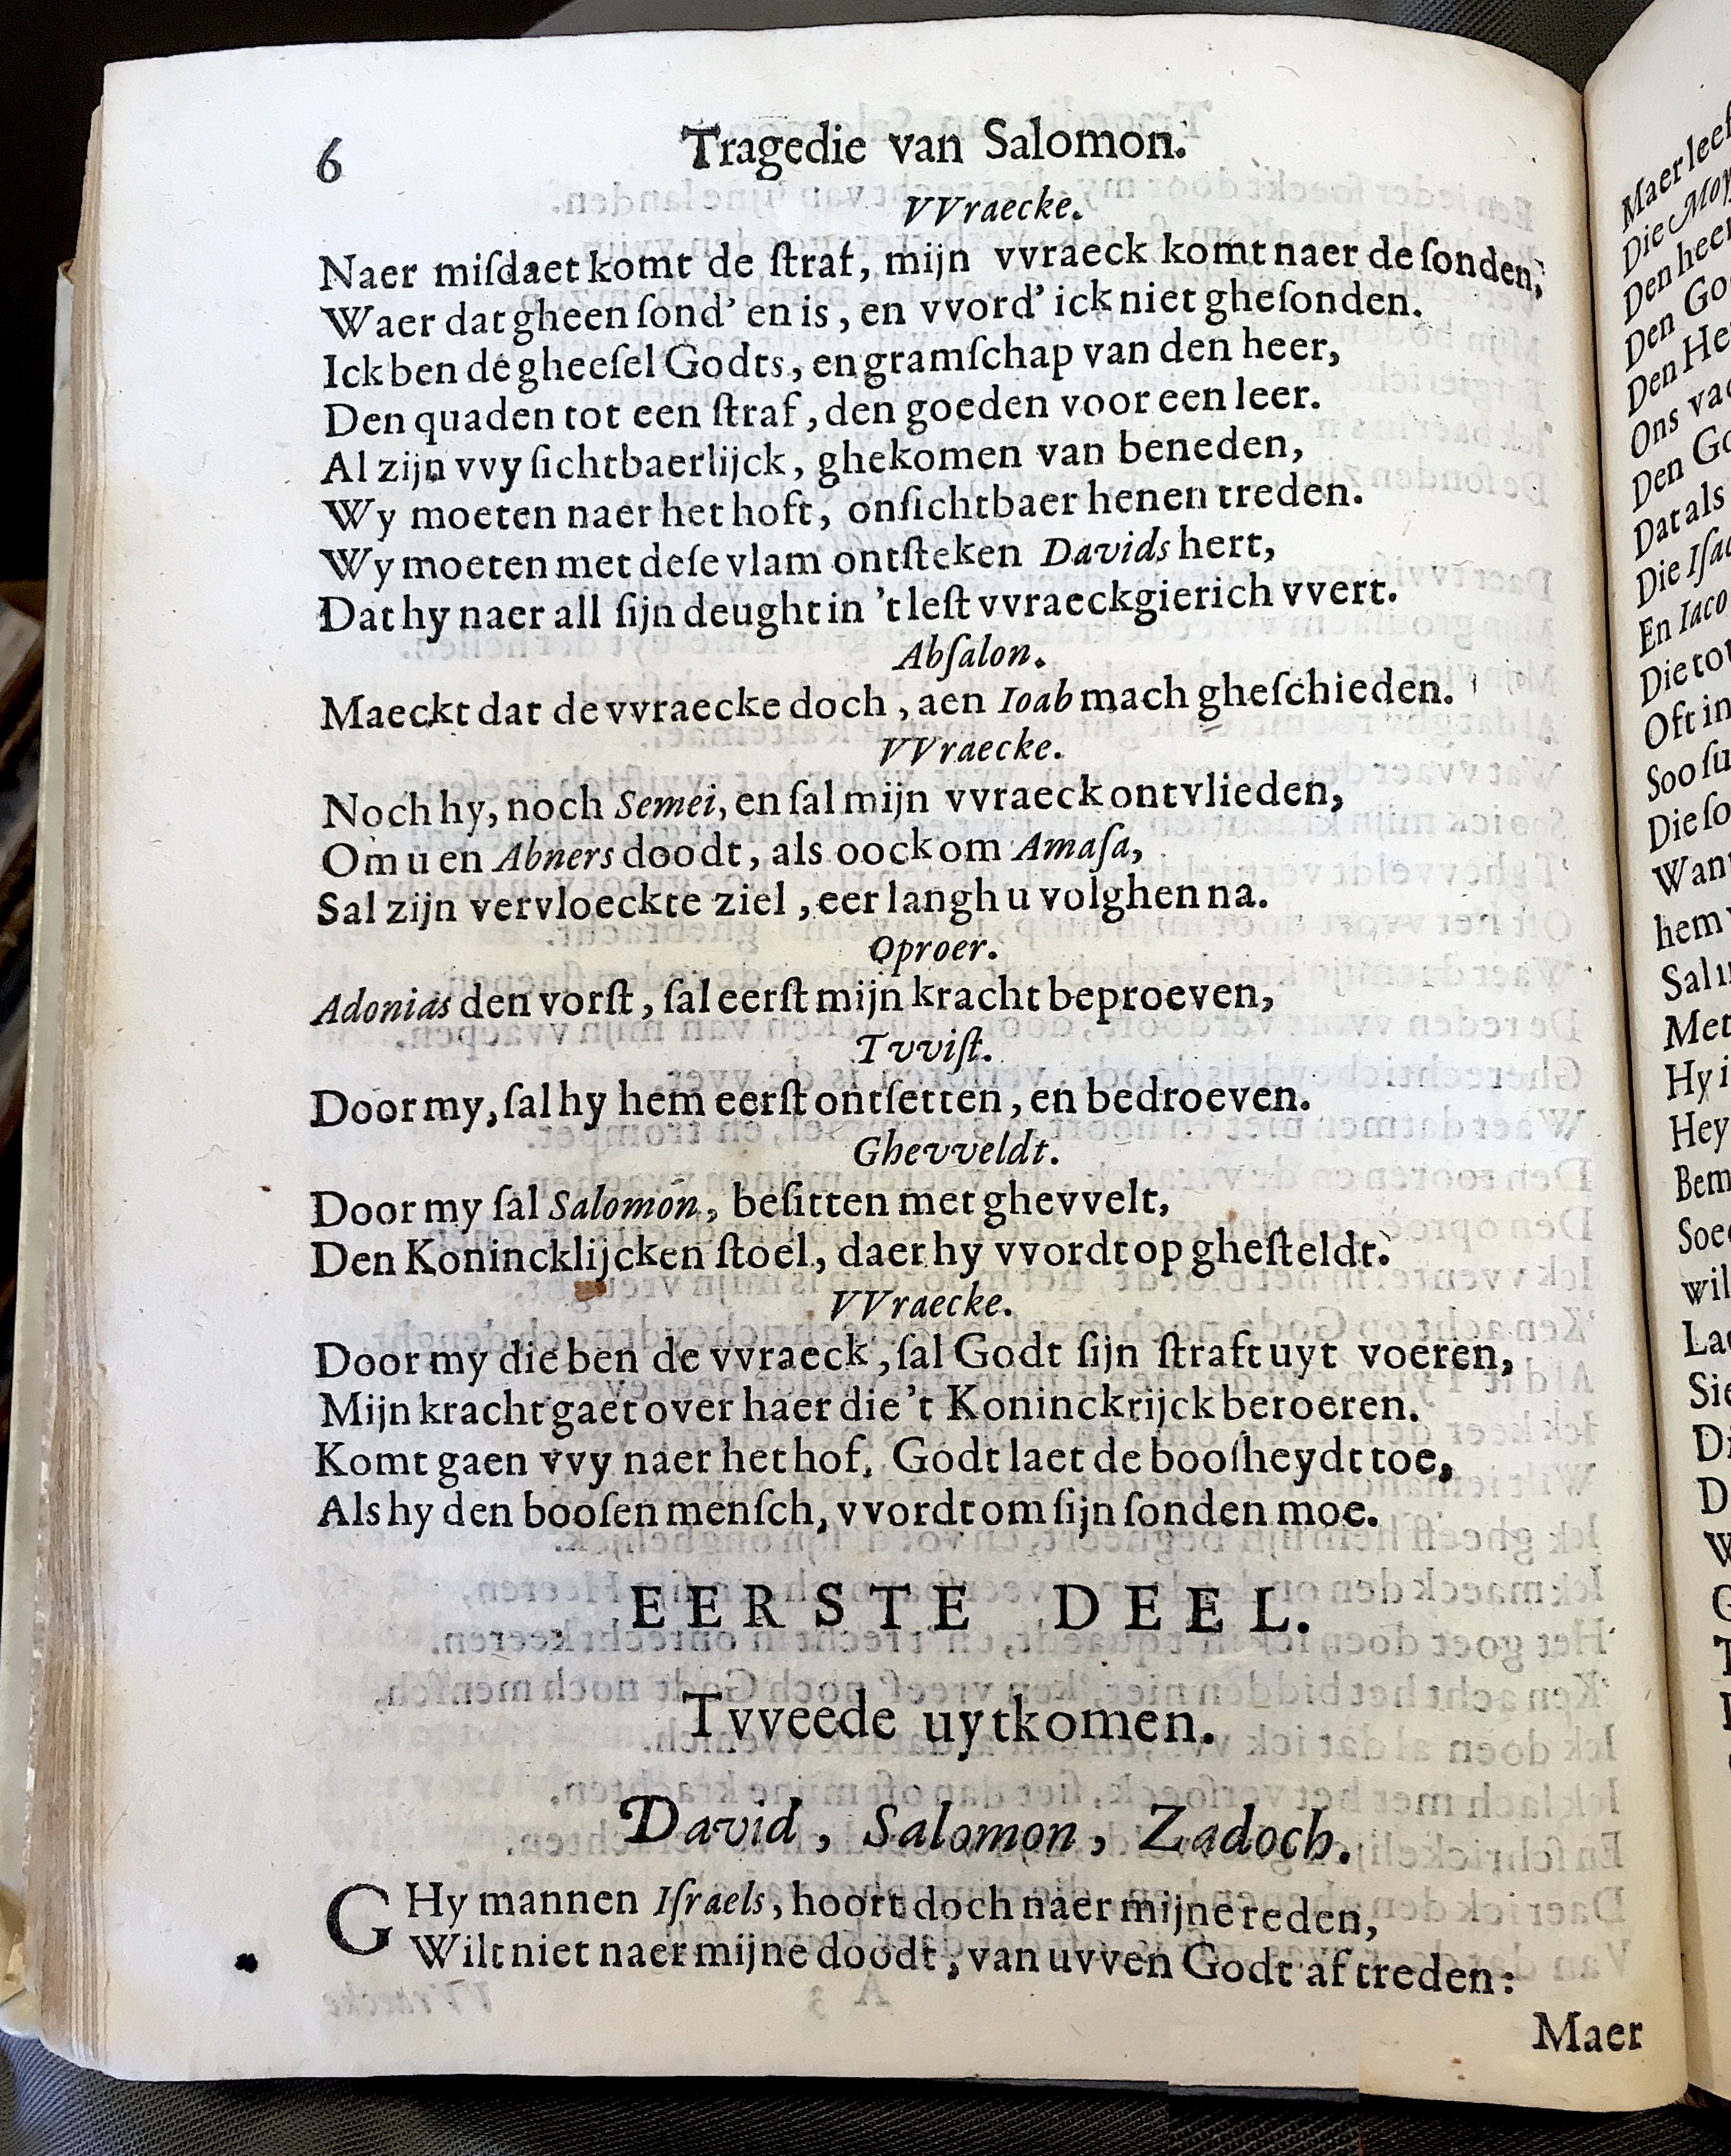 6 Tragedie van Salomon.
VVraecke.
Naer miſdaet komt de ſtraf, mijn vvraeck komt naer de ſonden,
Waer dat gheen ſond' en is, en vvord' ick niet gheſonden.
Ick ben de gheeſel Godts, en gramſchap van den heer,
Den quaden tot een ſtraf, den goeden voor een leer.
Al zijn vvy ſichtbaerlijck, ghekomen van beneden,
Wy moeten naer het hoft, onſichtbaer henen treden.
Wy moeten met deſe vlam ontſteken Davids hert,
Dat hy naer all ſijn deught in 't leſt vvraeckgierich vvert.
Abſalon.
Maeckt dat de vvraecke doch, aen Ioab mach gheſchieden.
VVraecke.
Noch hy, noch Semei, en ſal mijn vvraeck ontvlieden,
Om u en Abners doodt, als oock om Amaſa,
Sal zijn vervloeckte ziel, eer langh u volghen na.
Oproer.
Adonias den vorſt, ſal eerſt mijn kracht beproeven,
Tvviſt.
Door my, ſal hy hem eerſt ontſetten, en bedroeven.
Ghevveldt.
Door my ſal Salomon, beſitten met ghevvelt,
Den Konincklijcken ſtoel, daer hy vvordt op gheſteldt.
VVraecke.
Door my die ben de vvraeck, ſal Godt ſijn ſtraft uyt voeren,
Mijn kracht gaet over haer die 't Koninckrijck beroeren.
Komt gaen vvy naer het hof, Godt laet de boosheydt toe,
Als hy den booſen menſch, vvordt om ſijn ſonden moe.
EERSTE DEEL.
Tvveede uytkomen.
David, Salomon, Zadoch.
GHy mannen Iſraels, hoort doch naer mijne reden,
Wilt niet naer mijne doodt, van uvven Godt af treden:
Maer
Maer
Die
Den
Den
Den
Ons
Den
Dat als
Die
En
Die
Oft in
Soo
Die
hem
Met
Hy